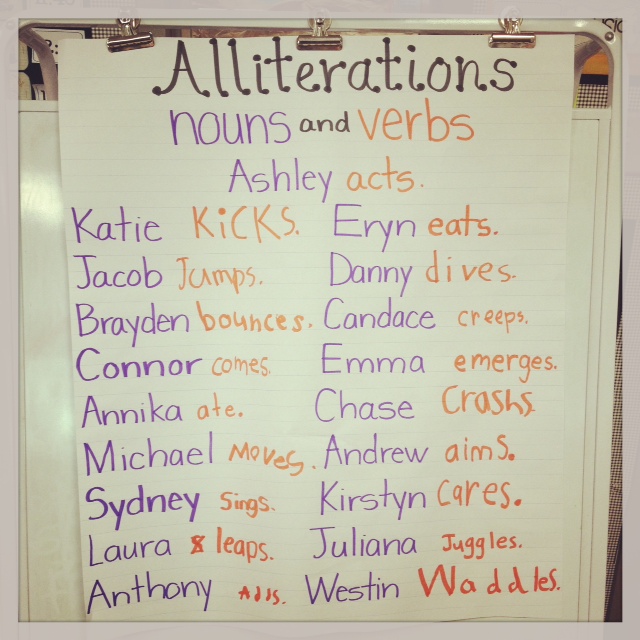 Alliterations
nouns and verbs
Ashley acts.
Katie KiCKS. Eryn eats.
Jacob Jumps. Danny dives.
Brayden bounces. Candace creeps.
Connor comes. Emma emerges.
Annika ate. Chase Crashs
Michael Moves. Andrew aims.
Sydney Sings. Kirstyn Cares.
Laura leaps. Juliana Juggles.
Anthony Adds. Westin Waddles.